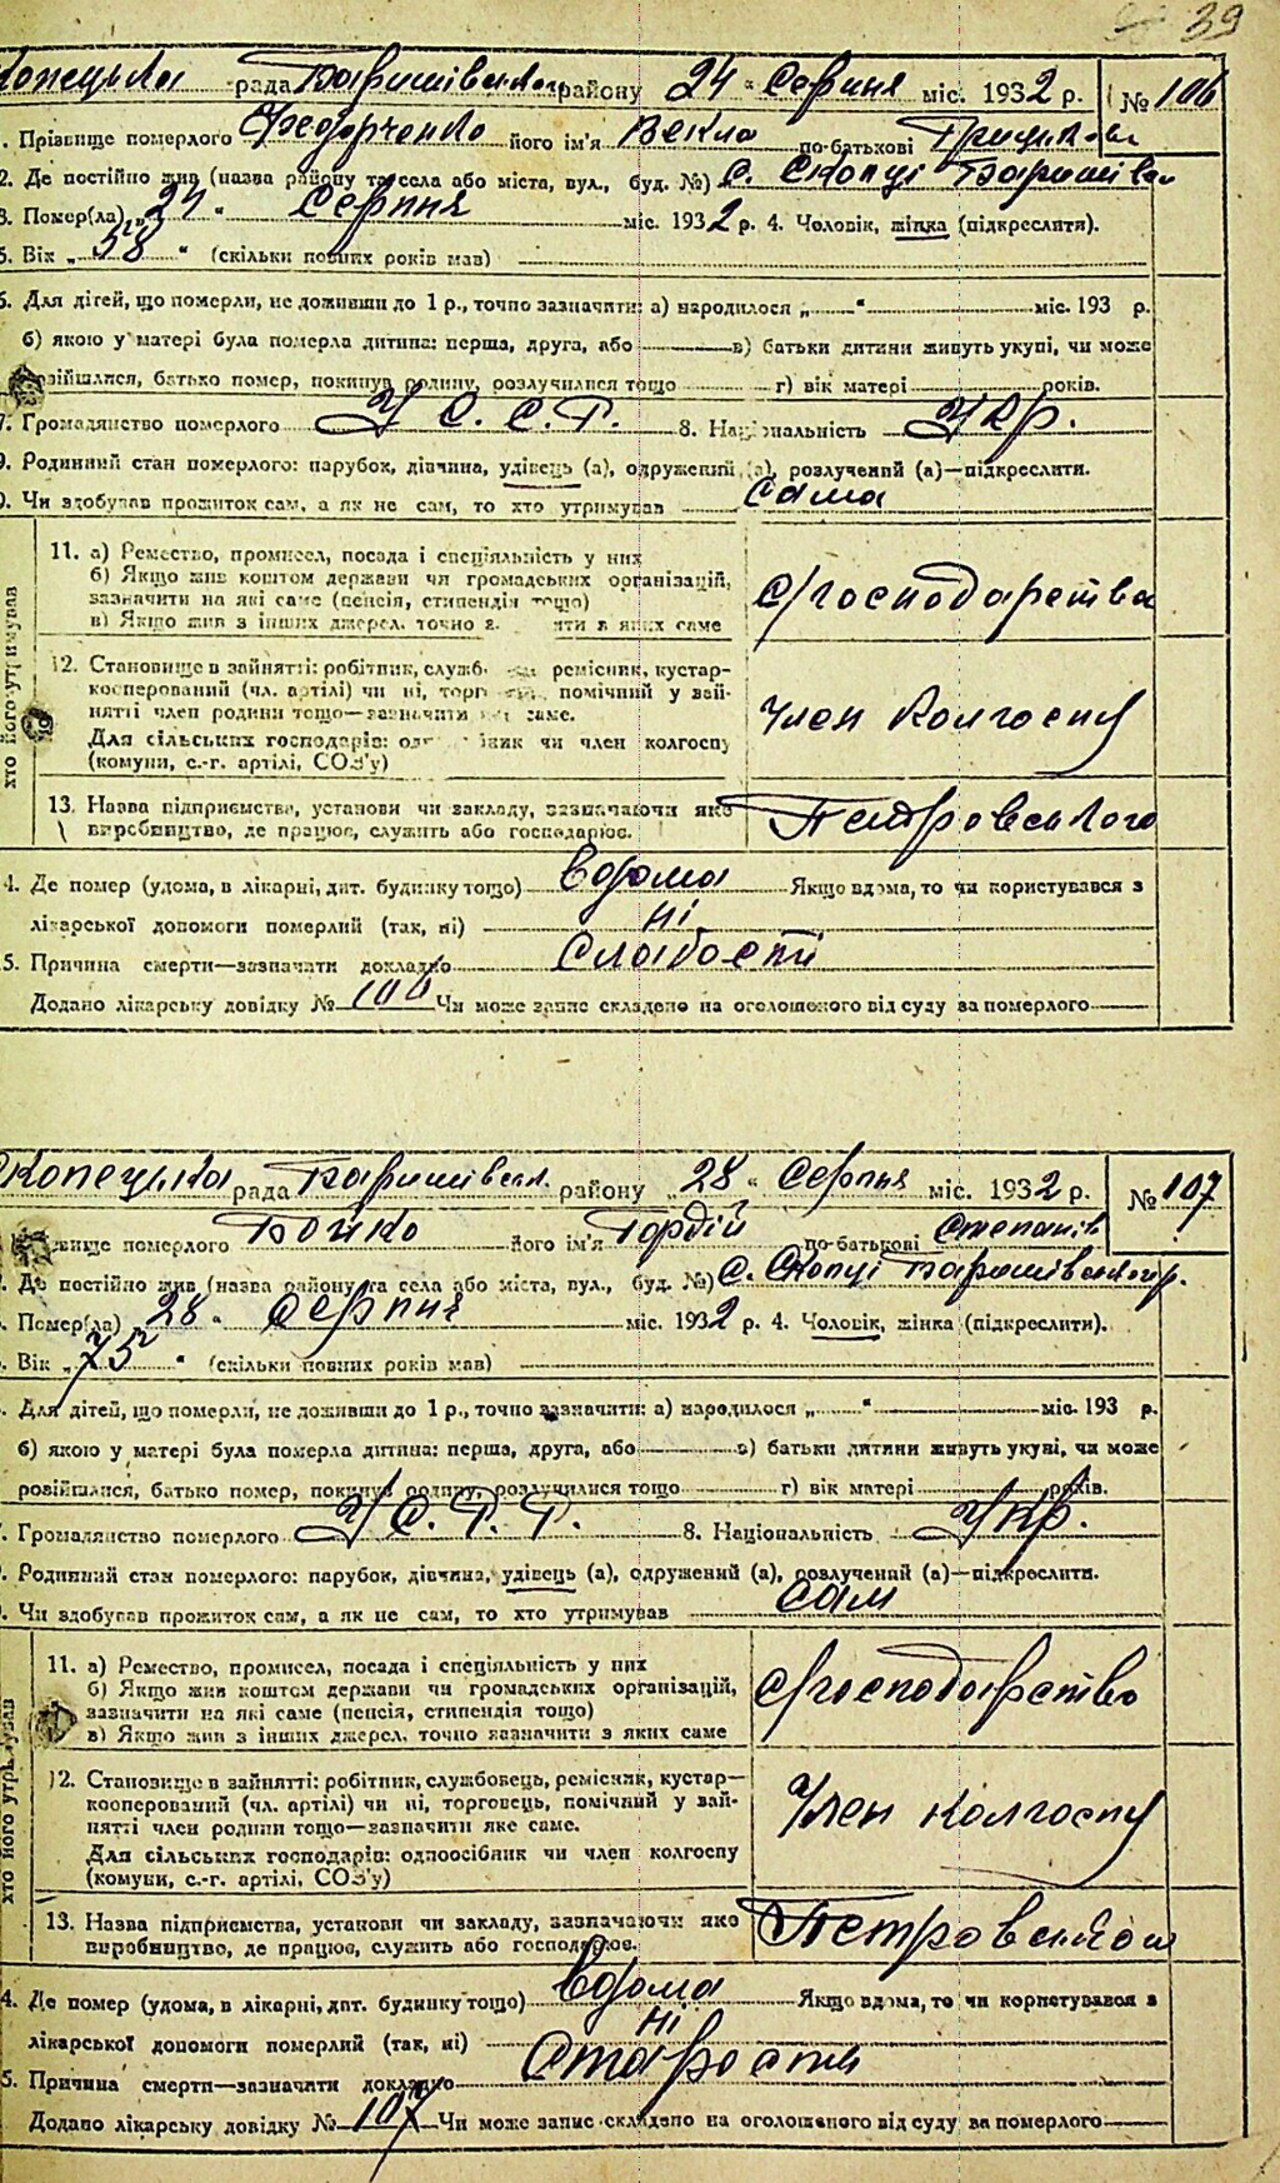 39
Копецька рада Баришівського району 24 " Серпня міс. 1932 р. № 106
. Прізвище померлого Федорченко його ім'я Векла по-батькові
2. Де постійно жив (назва району та села або міста, вул., буд. №) С. Скопці Баришівсь
3. Помер(ла) „ 24 " Серпня міс. 1932 р. 4. Чоловік, жінка (підкреслити).
5. Вік „ 58 " (скільки повних років мав)
6. Для дітей, що померли, не доживши до 1 р., точно зазначити: а) народилося „ " міс. 193 р.
б) якою у матері була померла дитина: перша, друга, або в) батьки дитини живуть укупі, чи може
розійшлися, батько помер, покинув родину, розлучилися тощо г) вік матері років.
7. Громадянство померлого У С. С. Р. 8. Національність Укр.
9. Родинний стан померлого: парубок, дівчина, удівець (а), одружений (а), розлучений (а)—підкреслити.
0. Чи здобував прожиток сам, а як не сам, то хто утримував Сама
хто його утримував
11. а) Ремество, промисел, посада і спеціяльність у них
б) Якщо жив коштом держави чи громадських організацій,
зазначити на які саме (пенсія, стипендія тощо)
в) Якщо жив з інших джерел, точно зазначити з яких саме
С/господарства
12. Становище в зайнятті: робітник, служб ремісник, кустар-
кооперований (чл. артілі) чи ні, торговець, помічний у зай-
нятті член родини тощо—зазначити яке саме.
Для сільських господарів: одноосібник чи член колгоспу
(комуни, с.-г. артілі, СОЗ'у)
Член колгоспу
13. Назва підприємства, установи чи закладу, зазначаючи яке
виробництво, де працює, служить або господарює.
Петровського
4. Де помер (удома, в лікарні, дит. будинку тощо) вдома Якщо вдома, то чи користувався з
лікарської допомоги померлий (так, ні) ні
5. Причина смерти—зазначити докладно Слабости
Додано лікарську довідку № 106 Чи може запис складено на оголошеного від суду за померлого
Скопецька рада Баришівськ. району „ 28 " Серпня міс. 1932 р. № 107
Прізвище померлого Бойко його ім'я Гордій по-батькові Степанів
. Де постійно жив (назва району та села або міста, вул., буд. №) С. Скопці Баришівського р.
. Помер(ла) „ 28 " Серпня міс. 1932 р. 4. Чоловік, жінка (підкреслити).
. Вік „ 75 " (скільки повних років мав)
. Для дітей, що померли, не доживши до 1 р., точно зазначити: а) народилося „ " міс. 193 р.
б) якою у матері була померла дитина: перша, друга, або в) батьки дитини живуть укупі, чи може
розійшлися, батько помер, покинув родину, розлучилися тощо г) вік матері років.
. Громадянство померлого У С. Р. Р. 8. Національність Укр.
. Родинний стан померлого: парубок, дівчина, удівець (а), одружений (а), розлучений (а)—підкреслити.
. Чи здобував прожиток сам, а як не сам, то хто утримував сам
хто його утримував
11. а) Ремество, промисел, посада і спеціяльність у них
б) Якщо жив коштом держави чи громадських організацій,
зазначити на які саме (пенсія, стипендія тощо)
в) Якщо жив з інших джерел, точно зазначити з яких саме
С/господарство
12. Становище в зайнятті: робітник, службовець, ремісник, кустар—
кооперований (чл. артілі) чи ні, торговець, помічний у зай-
нятті член родини тощо—зазначити яке саме.
Для сільських господарів: одноосібник чи член колгоспу
(комуни, с.-г. артілі, СОЗ'у)
Член колгоспу
13. Назва підприємства, установи чи закладу, зазначаючи яке
виробництво, де працює, служить або господарює.
4. Де помер (удома, в лікарні, дит. будинку тощо) вдома Якщо вдома, то чи користувався з
лікарської допомоги померлий (так, ні) ні
5. Причина смерти—зазначити докладно Старости
Додано лікарську довідку № 107 Чи може запис складено на оголошеного від суду за померлого